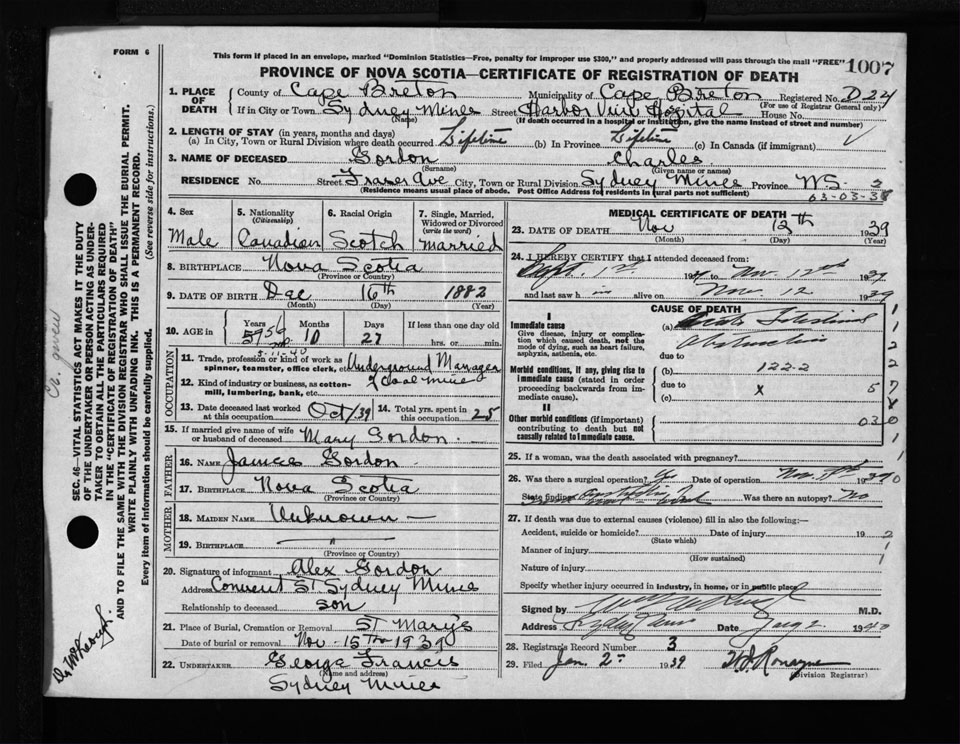 FORM 6
This form if placed in an envelope, marked "Dominion Statistics—Free, penalty for improper use $300," and properly addressed will pass through the mail "FREE"
1007
PROVINCE OF NOVA SCOTIA—CERTIFICATE OF REGISTRATION OF DEATH
1. PLACE OF DEATH
County of Cape Breton Municipality of Cape Breton Registered No. D24
(For use of Registrar General only)
If in City or Town Sydney Mines Street Harbor View Hospital House No.
(Name) (If death occurred in a hospital or institution, give the name instead of street and number)
2. LENGTH OF STAY (in years, months and days)
(a) In City, Town or Rural Division where death occurred Lifetime (b) In Province Lifetime (c) In Canada (if immigrant)
3. NAME OF DECEASED Gordon Charles
(Surname) (Given name or names)
RESIDENCE No. Street Fraser Ave City, Town or Rural Division Sydney Mines Province NS. 2
(Residence means usual place of abode. Post Office Address for residents in rural parts not sufficient)
03-03-38
4. Sex 5. Nationality (Citizenship) 6. Racial Origin 7. Single, Married, Widowed or Divorced (write the word)
Male Canadian Scotch married
8. BIRTHPLACE Nova Scotia
(Province or Country)
9. DATE OF BIRTH Dec 16th 1882
(Month) (Day) (Year)
10. AGE in Years Months Days If less than one day old
57 56 10 27 hrs. or min.
5-11-40
OCCUPATION
11. Trade, profession or kind of work as spinner, teamster, office clerk, etc. Underground Manager
12. Kind of industry or business, as cotton-mill, lumbering, bank, etc. of Coal mine
13. Date deceased last worked at this occupation Oct/39 14. Total yrs. spent in this occupation 25
15. If married give name of wife or husband of deceased Mary Gordon.
FATHER
16. NAME James Gordon
17. BIRTHPLACE Nova Scotia
(Province or Country)
MOTHER
18. MAIDEN NAME Unknown —
19. BIRTHPLACE "
(Province or Country)
20. Signature of informant Alex Gordon
Address Convent St Sydney Mines
Relationship to deceased son
21. Place of Burial, Cremation or Removal St Mary's
Date of burial or removal Nov 15th 1939
22. UNDERTAKER George Francis
(Name and address)
Sydney Mines
MEDICAL CERTIFICATE OF DEATH
23. DATE OF DEATH Nov 12th 1939
(Month) (Day) (Year)
24. I HEREBY CERTIFY that I attended deceased from:
Sept. 1st to Nov. 12th 1939
and last saw him alive on Nov. 12 1939
CAUSE OF DEATH
I
Immediate cause
Give disease, injury or complication which caused death, not the mode of dying, such as heart failure, asphyxia, asthenia, etc.
(a) Intestinal
Obstruction
due to
Morbid conditions, if any, giving rise to immediate cause (stated in order proceeding backwards from immediate cause).
(b) 122-2
due to
(c) x 5
II
Other morbid conditions (if important) contributing to death but not causally related to immediate cause.
030
25. If a woman, was the death associated with pregnancy?
26. Was there a surgical operation? Date of operation Nov. 19
State findings Was there an autopsy? No
27. If death was due to external causes (violence) fill in also the following:—
Accident, suicide or homicide? Date of injury 19
(State which)
Manner of injury
(How sustained)
Nature of injury
Specify whether injury occurred in industry, in home, or in public place
Signed by M.D.
Address Sydney Mines Date 2 1940
28. Registrar's Record Number 3
29. Filed Jan. 2nd 1939
(Division Registrar)
SEC. 46—VITAL STATISTICS ACT MAKES IT THE DUTY OF THE UNDERTAKER OR PERSON ACTING AS UNDERTAKER TO OBTAIN ALL THE PARTICULARS REQUIRED IN THE "CERTIFICATE OF REGISTRATION OF DEATH" AND TO FILE THE SAME WITH THE DIVISION REGISTRAR WHO SHALL ISSUE THE BURIAL PERMIT.
WRITE PLAINLY WITH UNFADING INK. THIS IS A PERMANENT RECORD.
Every item of information should be carefully supplied. (See reverse side for instructions.)